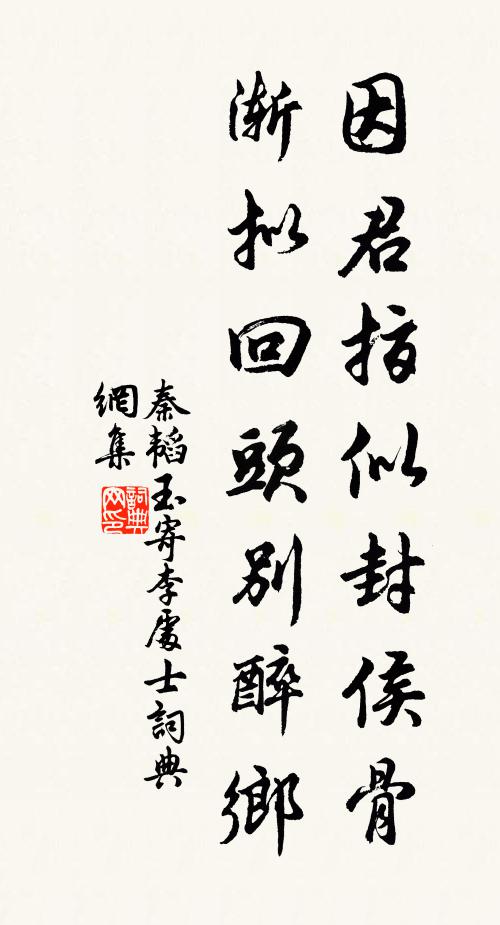 因君指似封侯骨
漸拟回頭別醉鄉
秦韜玉寄李處士詞典
網集
詞典
网印